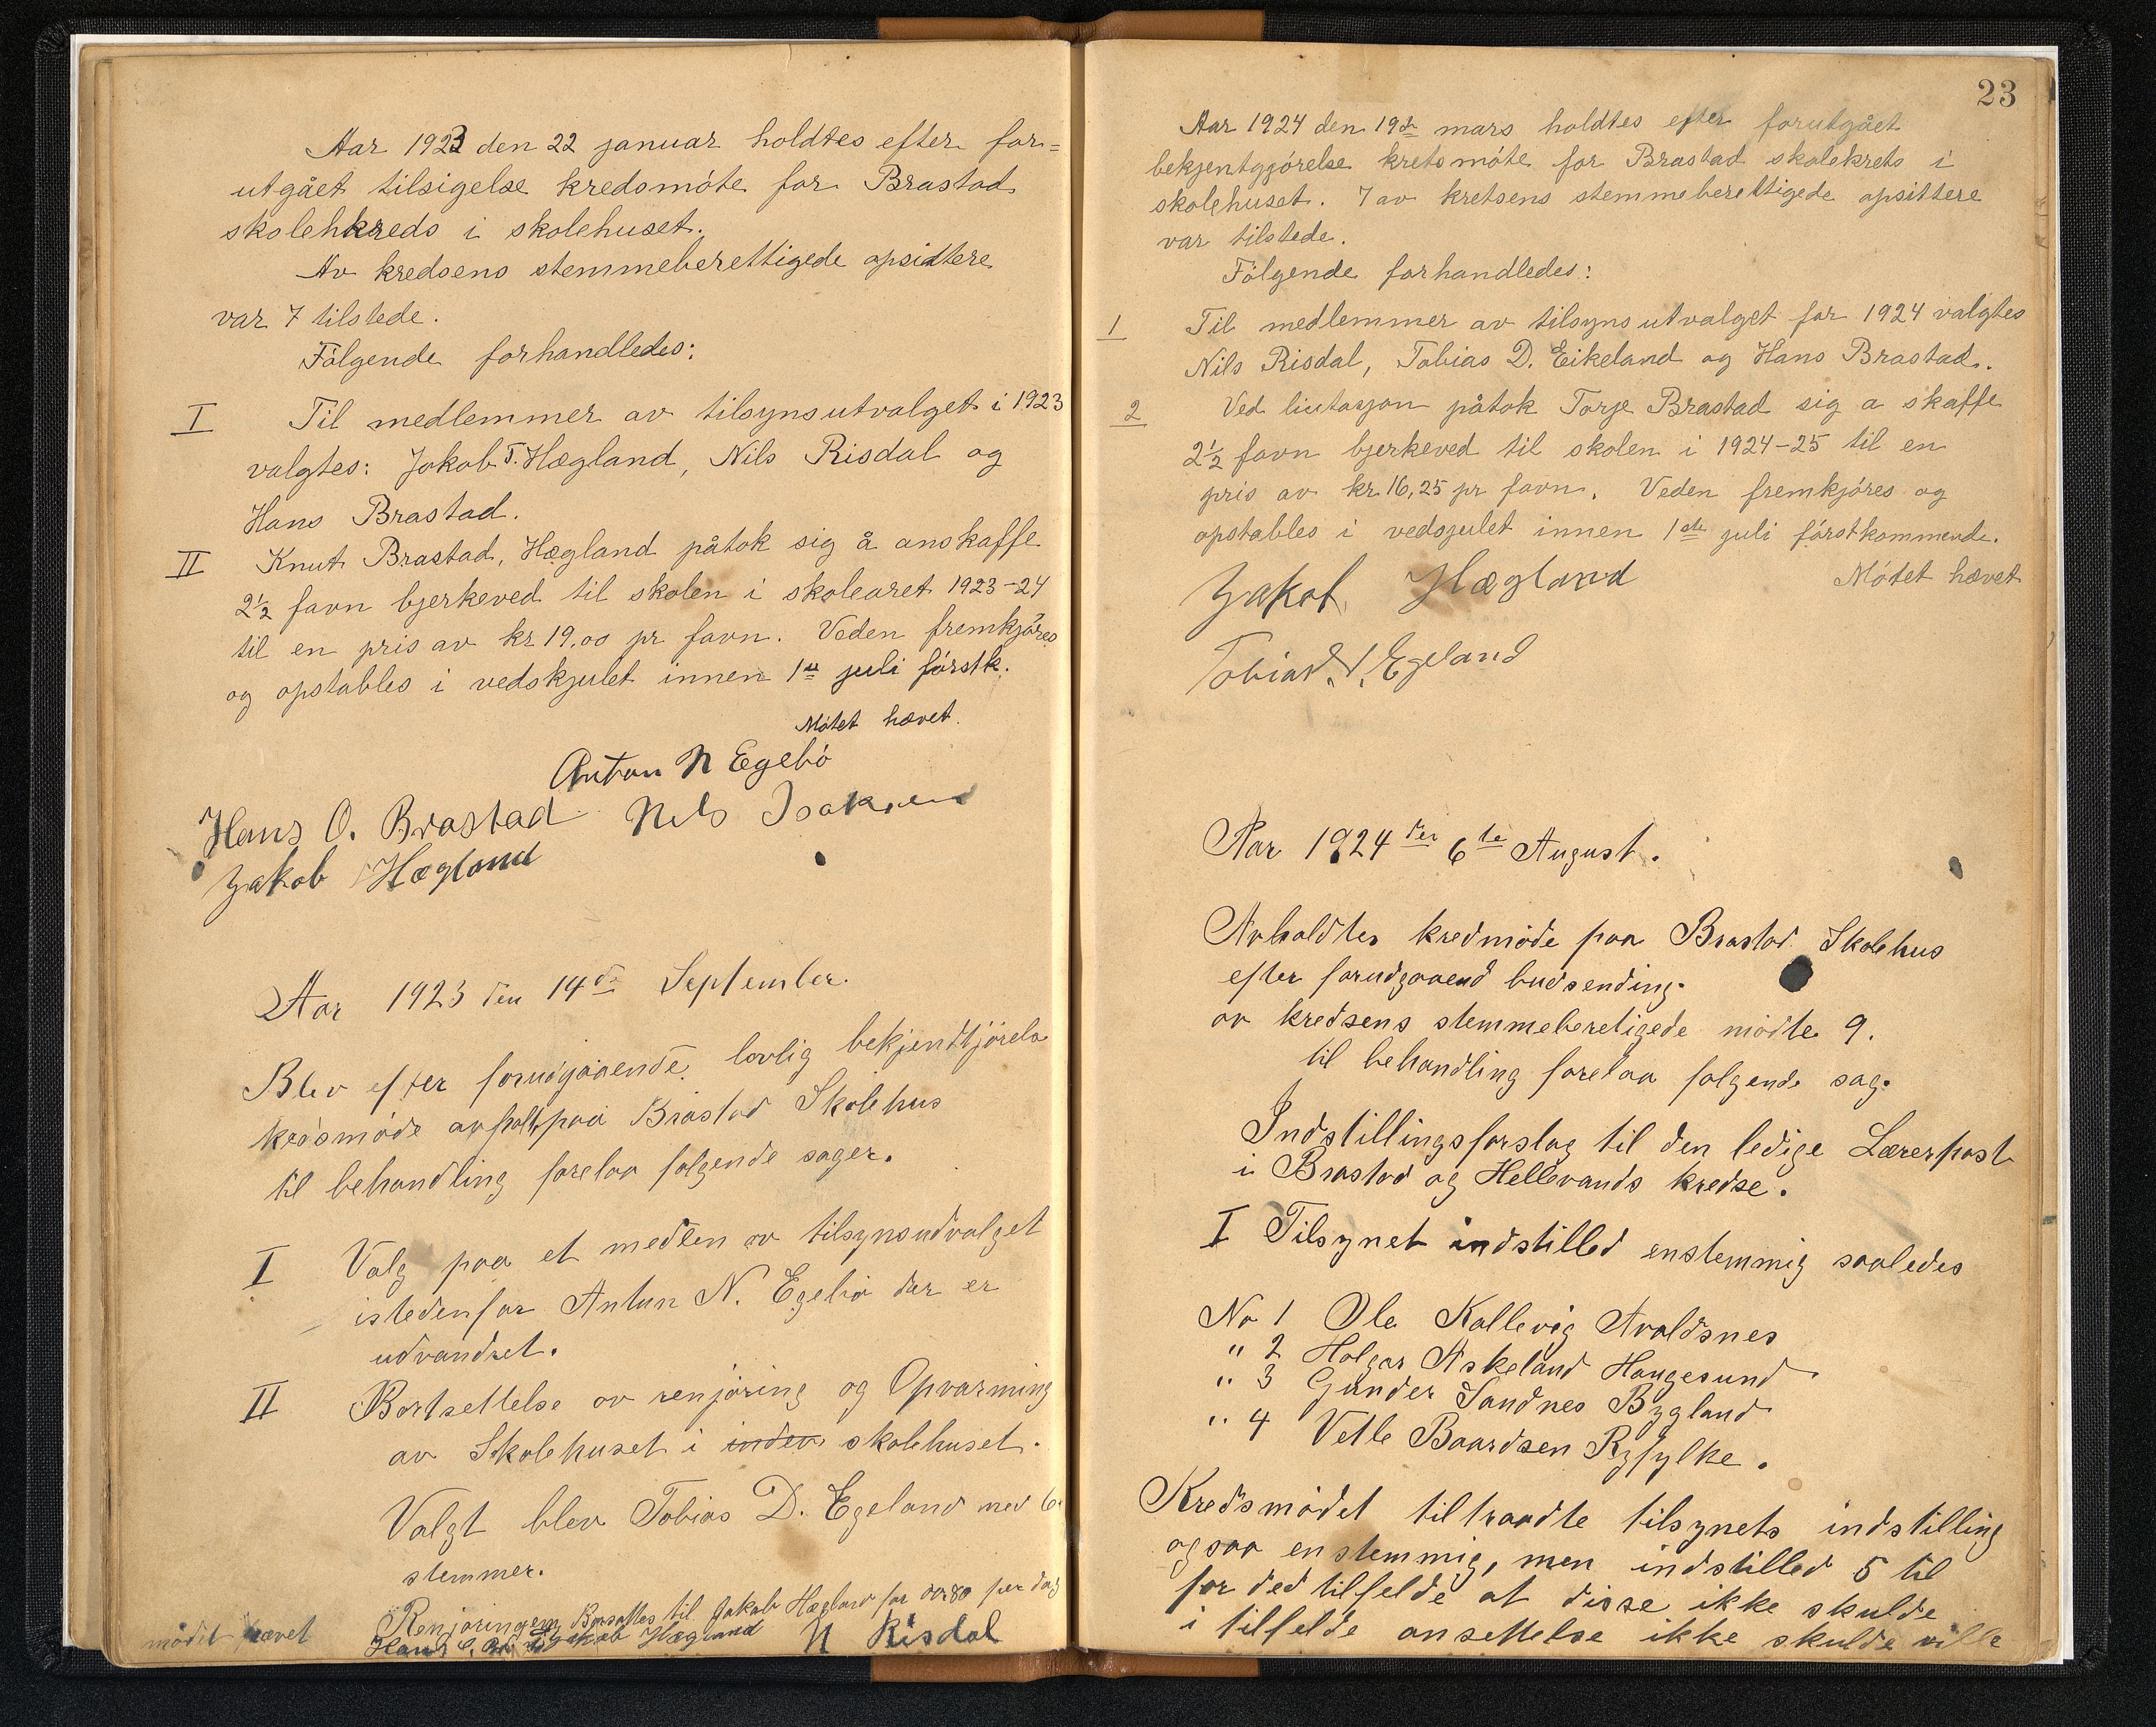 Aar 1923 den 22 januar holdtes efter for-
utgået tilsigelse kredsmöte for Brastad
skolehkreds i skolehuset.
Av kredsens stemmeberettigede opsidtere
var 7 tilstede.
Fölgende forhandledes:
I Til medlemmer av tilsynsutvalget i 1923
valgtes: Jakob T. Hægland, Nils Risdal og
Hans Brastad.
II Knut Brastad, Hægland påtok sig å anskaffe
2½ favn bjerkeved til skolen i skolearet 1923-24
til en pris av kr 19,00 pr favn. Veden fremkjöres
og opstables i vedskjulet innen 1ste juli förstk.
Mötet hævet.
Anton N Egebö
Hans O. Brastad Nils Isaksen
Jakob Hægland
Aar 1923 den 14de September.
Blev efter forudgaaende lovlig bekjendtjörelse
kredsmöde avholt paa Brastad Skolehus
til behandling forelaa folgende sager.
I Valg paa et medlem av tilsynsudvalget
istedenfor Antun N. Egebö der er
udvandret.
II Bortsettelse av renjöring og Opvarming
av Skolehuset i inden skolehuset.
Valgt blev Tobias D. Egeland med 6
stemmer.
Renjöringen Borsattes til Jakob Hægland for 80 per dag
mödet hævet Hans O. Jakob Hægland N Risdal
23
Aar 1924 den 19de mars holdtes efter forutgået
bekjentgjörelse kretsmöte for Brastad skolekrets i
skolehuset. 7 av kretsens stemmeberettigede opsittere
var tilstede.
Fölgende forhandledes:
1 Til medlemmer av tilsynsutvalget for 1924 valgtes
Nils Risdal, Tobias D. Eikeland og Hans Brastad.
2 Ved liutasjon påtok Torje Brastad sig a skaffe
2½ favn bjerkeved til skolen i 1924-25 til en
pris av kr. 16,25 pr favn. Veden fremkjöres og
opstables i vedsjulet innen 1ste juli förstkommende.
Mötet hævet
Jakob Hægland
Tobias D. Egeland
Aar 1924 den 6te August.
Avholdtes kredmöde paa Brastad Skolehus
efter forudgaaend budsending.
av kredsens stemmeberetigede mödte 9.
til behandling forelaa folgende sag.
Indstillingsforslag til den ledige Lærerpost
i Brastad og Hellevands kredse.
I Tilsynet indstilled enstemmig saaledes
No 1 Ole Kallevig Avaldsnes
" 2 Holgar Askeland Haugesund
" 3 Gunder Sandnes Bygland
" 4 Vetle Baardsen Ryfylke.
Kredsmödet tiltraadte tilsynets indstilling
ogsaa enstemmig, men indstilled 5 til
for ded tilfelde at disse ikke skulde
i tilfelde ansettelse ikke skulde ville